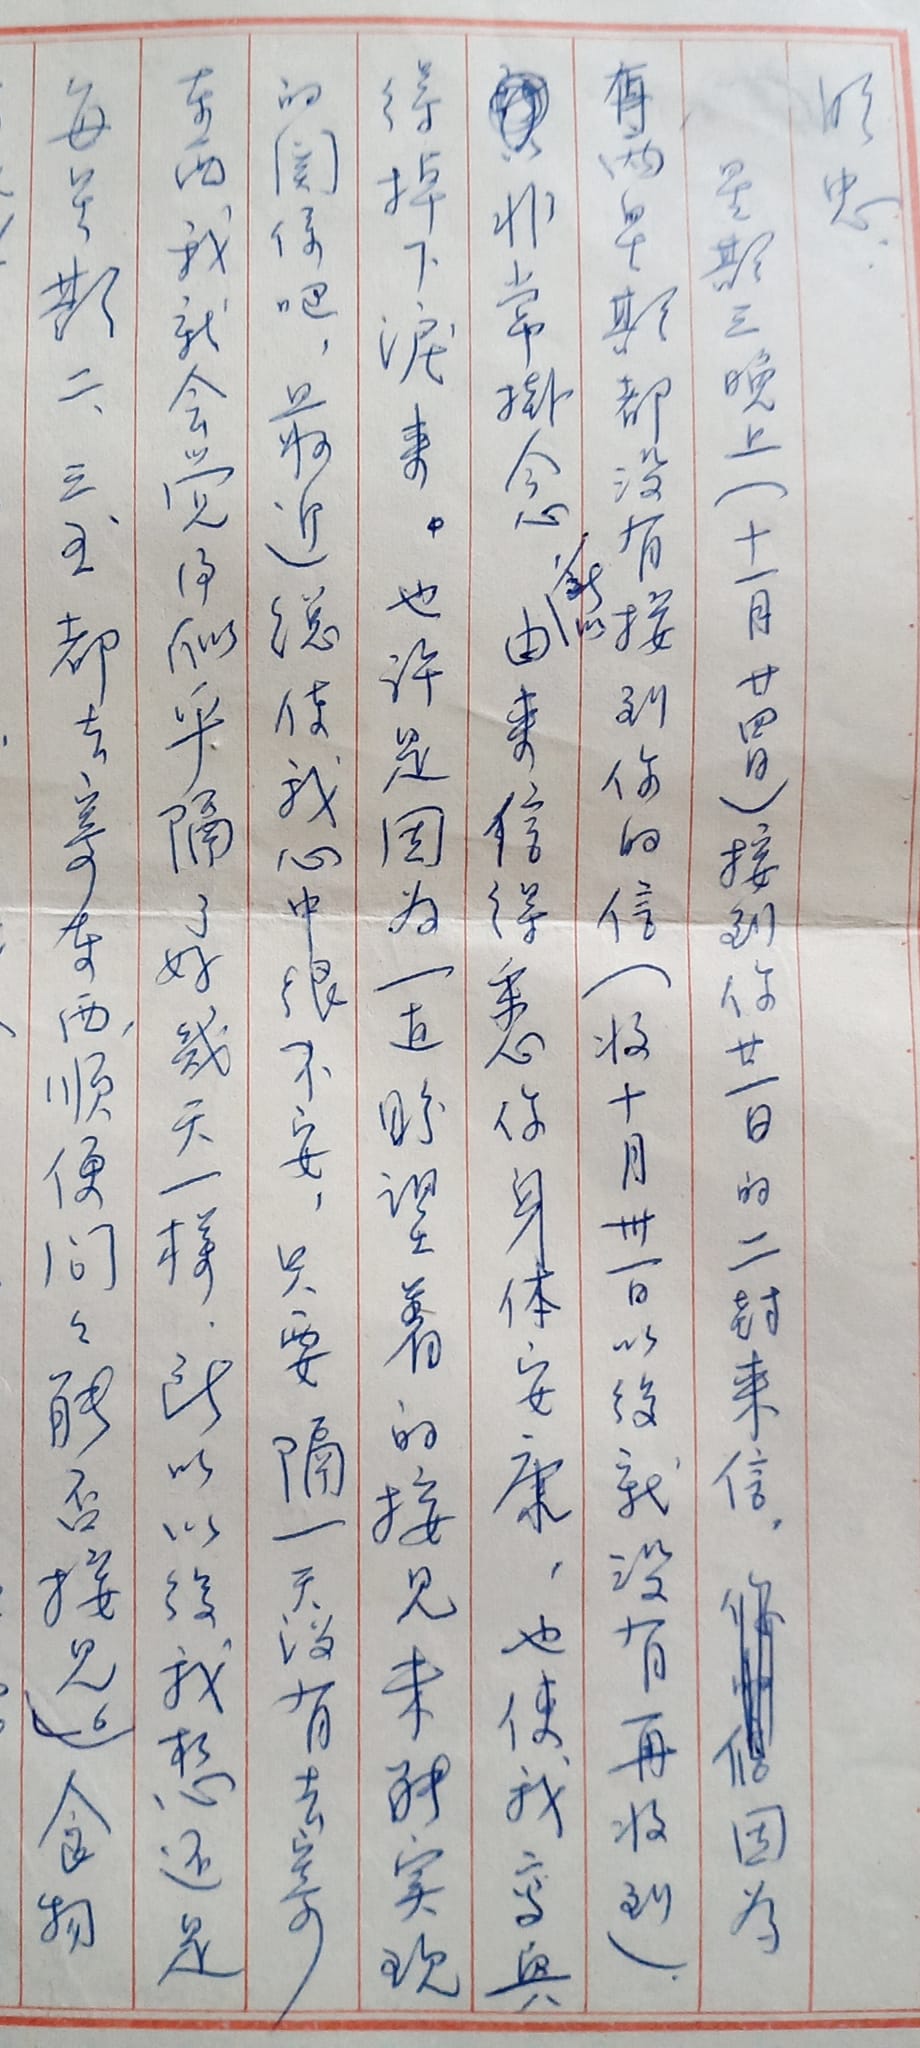 忠：
星期三晚上（十一月廿四日）接到你廿一日的二封来信，因为
有两星期都没有接到你的信（收十月卅一日以後就没有再收到）．
所以非常掛念 由来信得悉你身体安康，也使我高兴
得掉下淚来。也许是因为一直盼望着的接见未能实现
的関係吧，最近總使我心中很不安，只要隔一天没有去寄
东西我就会觉得似乎隔了好幾天一樣．所以以後我想还是
每星期二、三、五都去寄东西，順便问々能否接见。食物